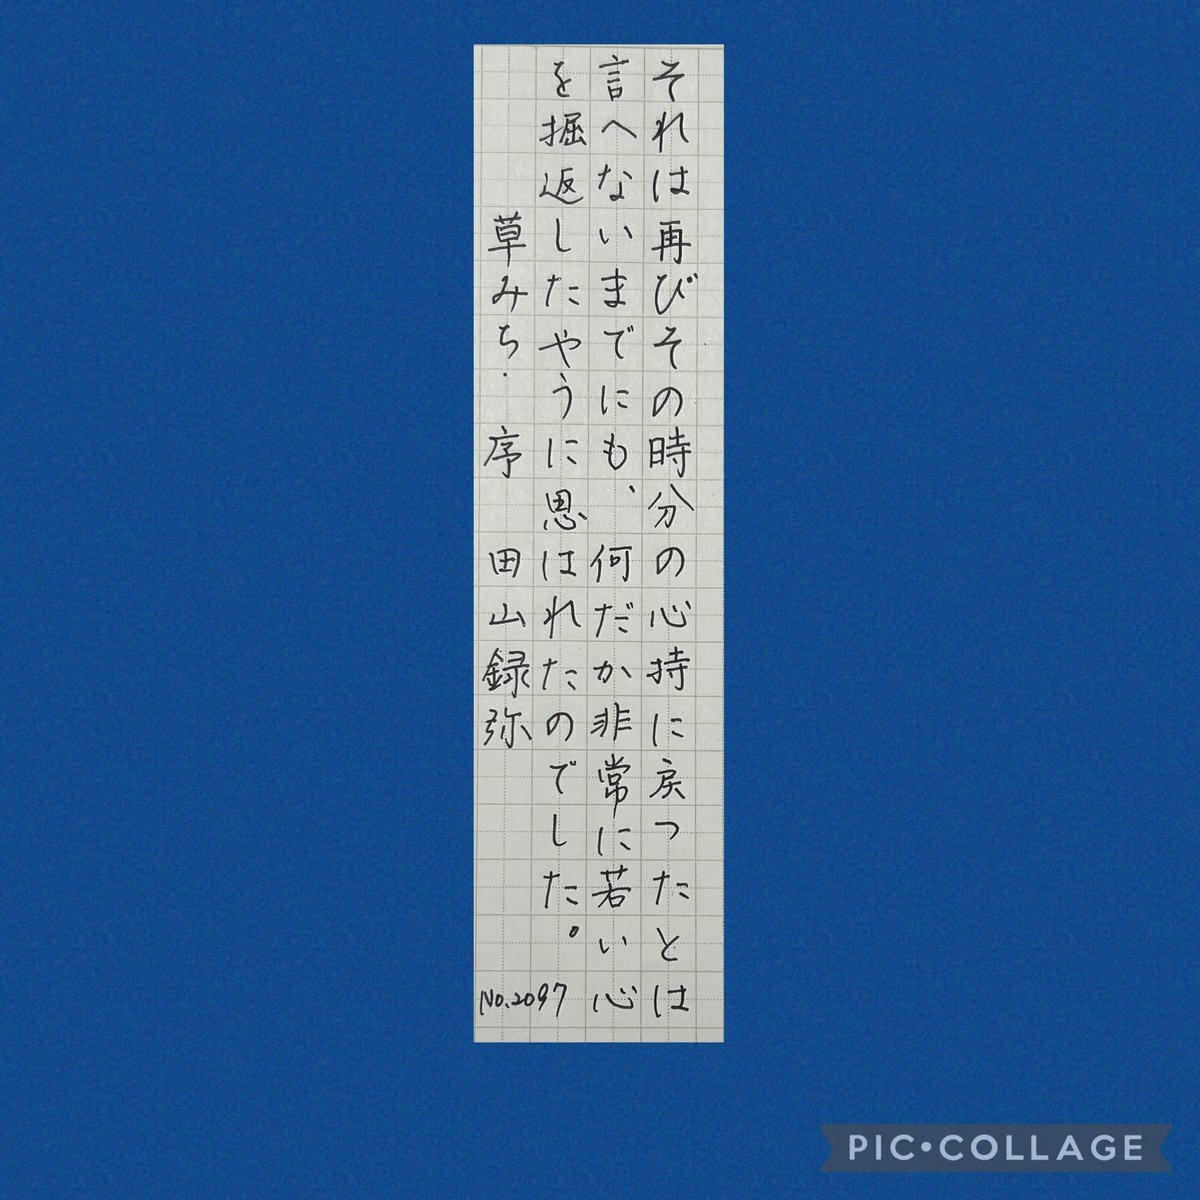 それは再びその時分の心持に戻つたとは
言へないまでにも、何だか非常に若い心
を掘返したやうに思はれたのでした。
草みち. 序 田山録弥
No.2097
PIC•COLLAGE